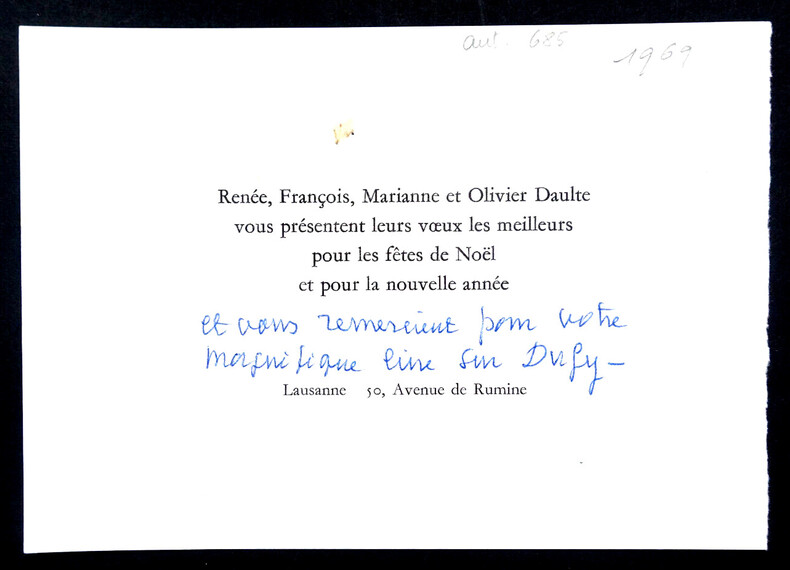 aut. 685
1969
Renée, François, Marianne et Olivier Daulte
vous présentent leurs vœux les meilleurs
pour les fêtes de Noël
et pour la nouvelle année
et vous remercient pour votre
magnifique livre sur Dufy –
Lausanne 50, Avenue de Rumine